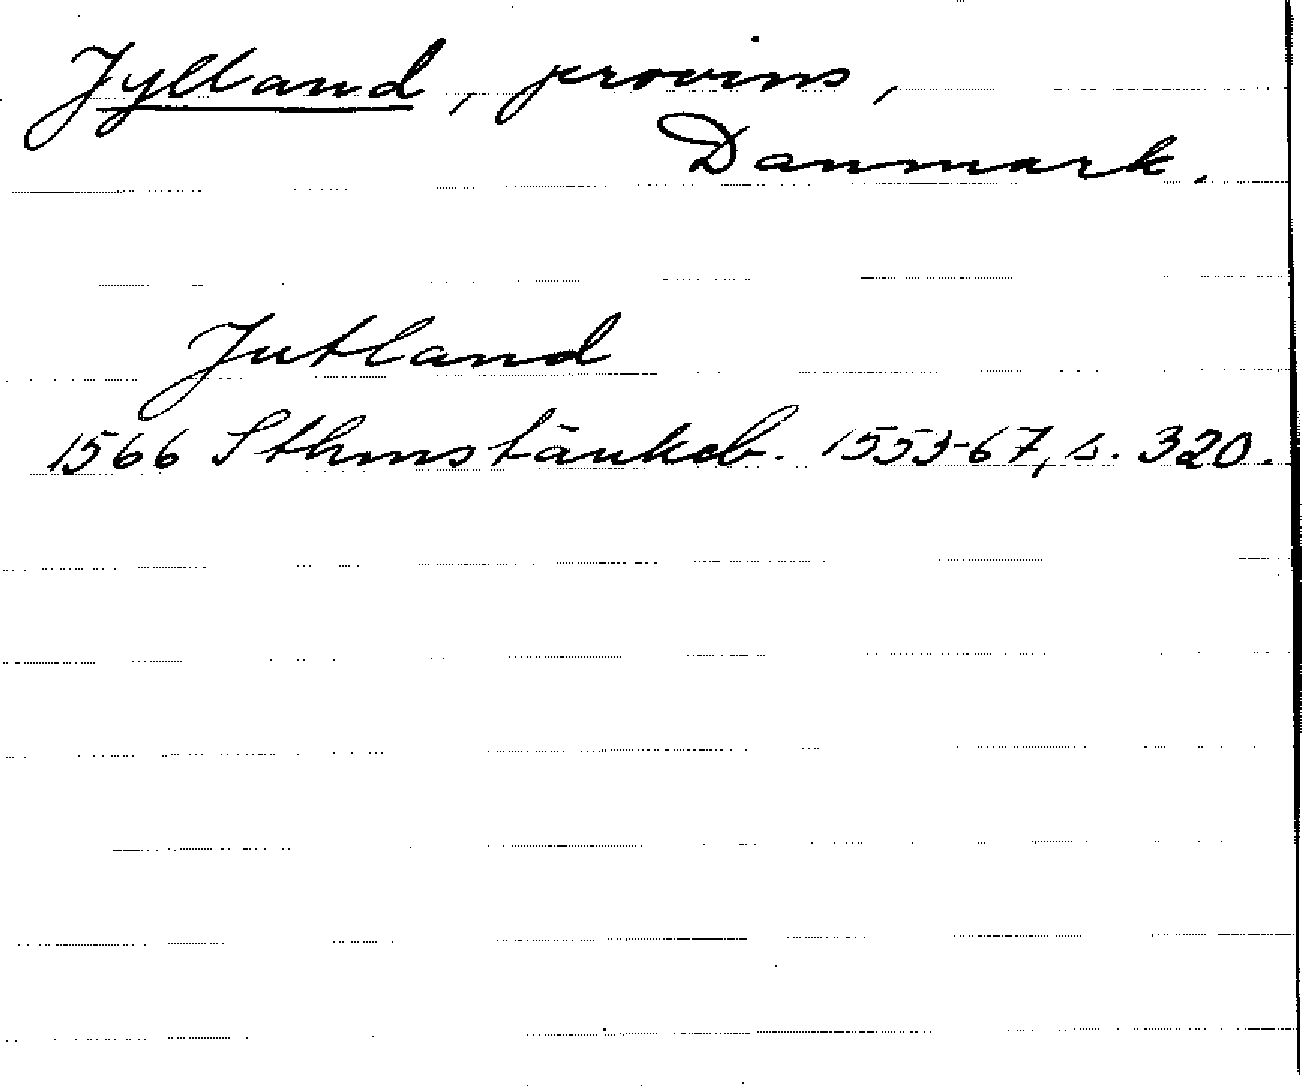 Jylland, provins,
Danmark.
Jutland
1566 Sthmstänkeb. 1553-67, s. 320.